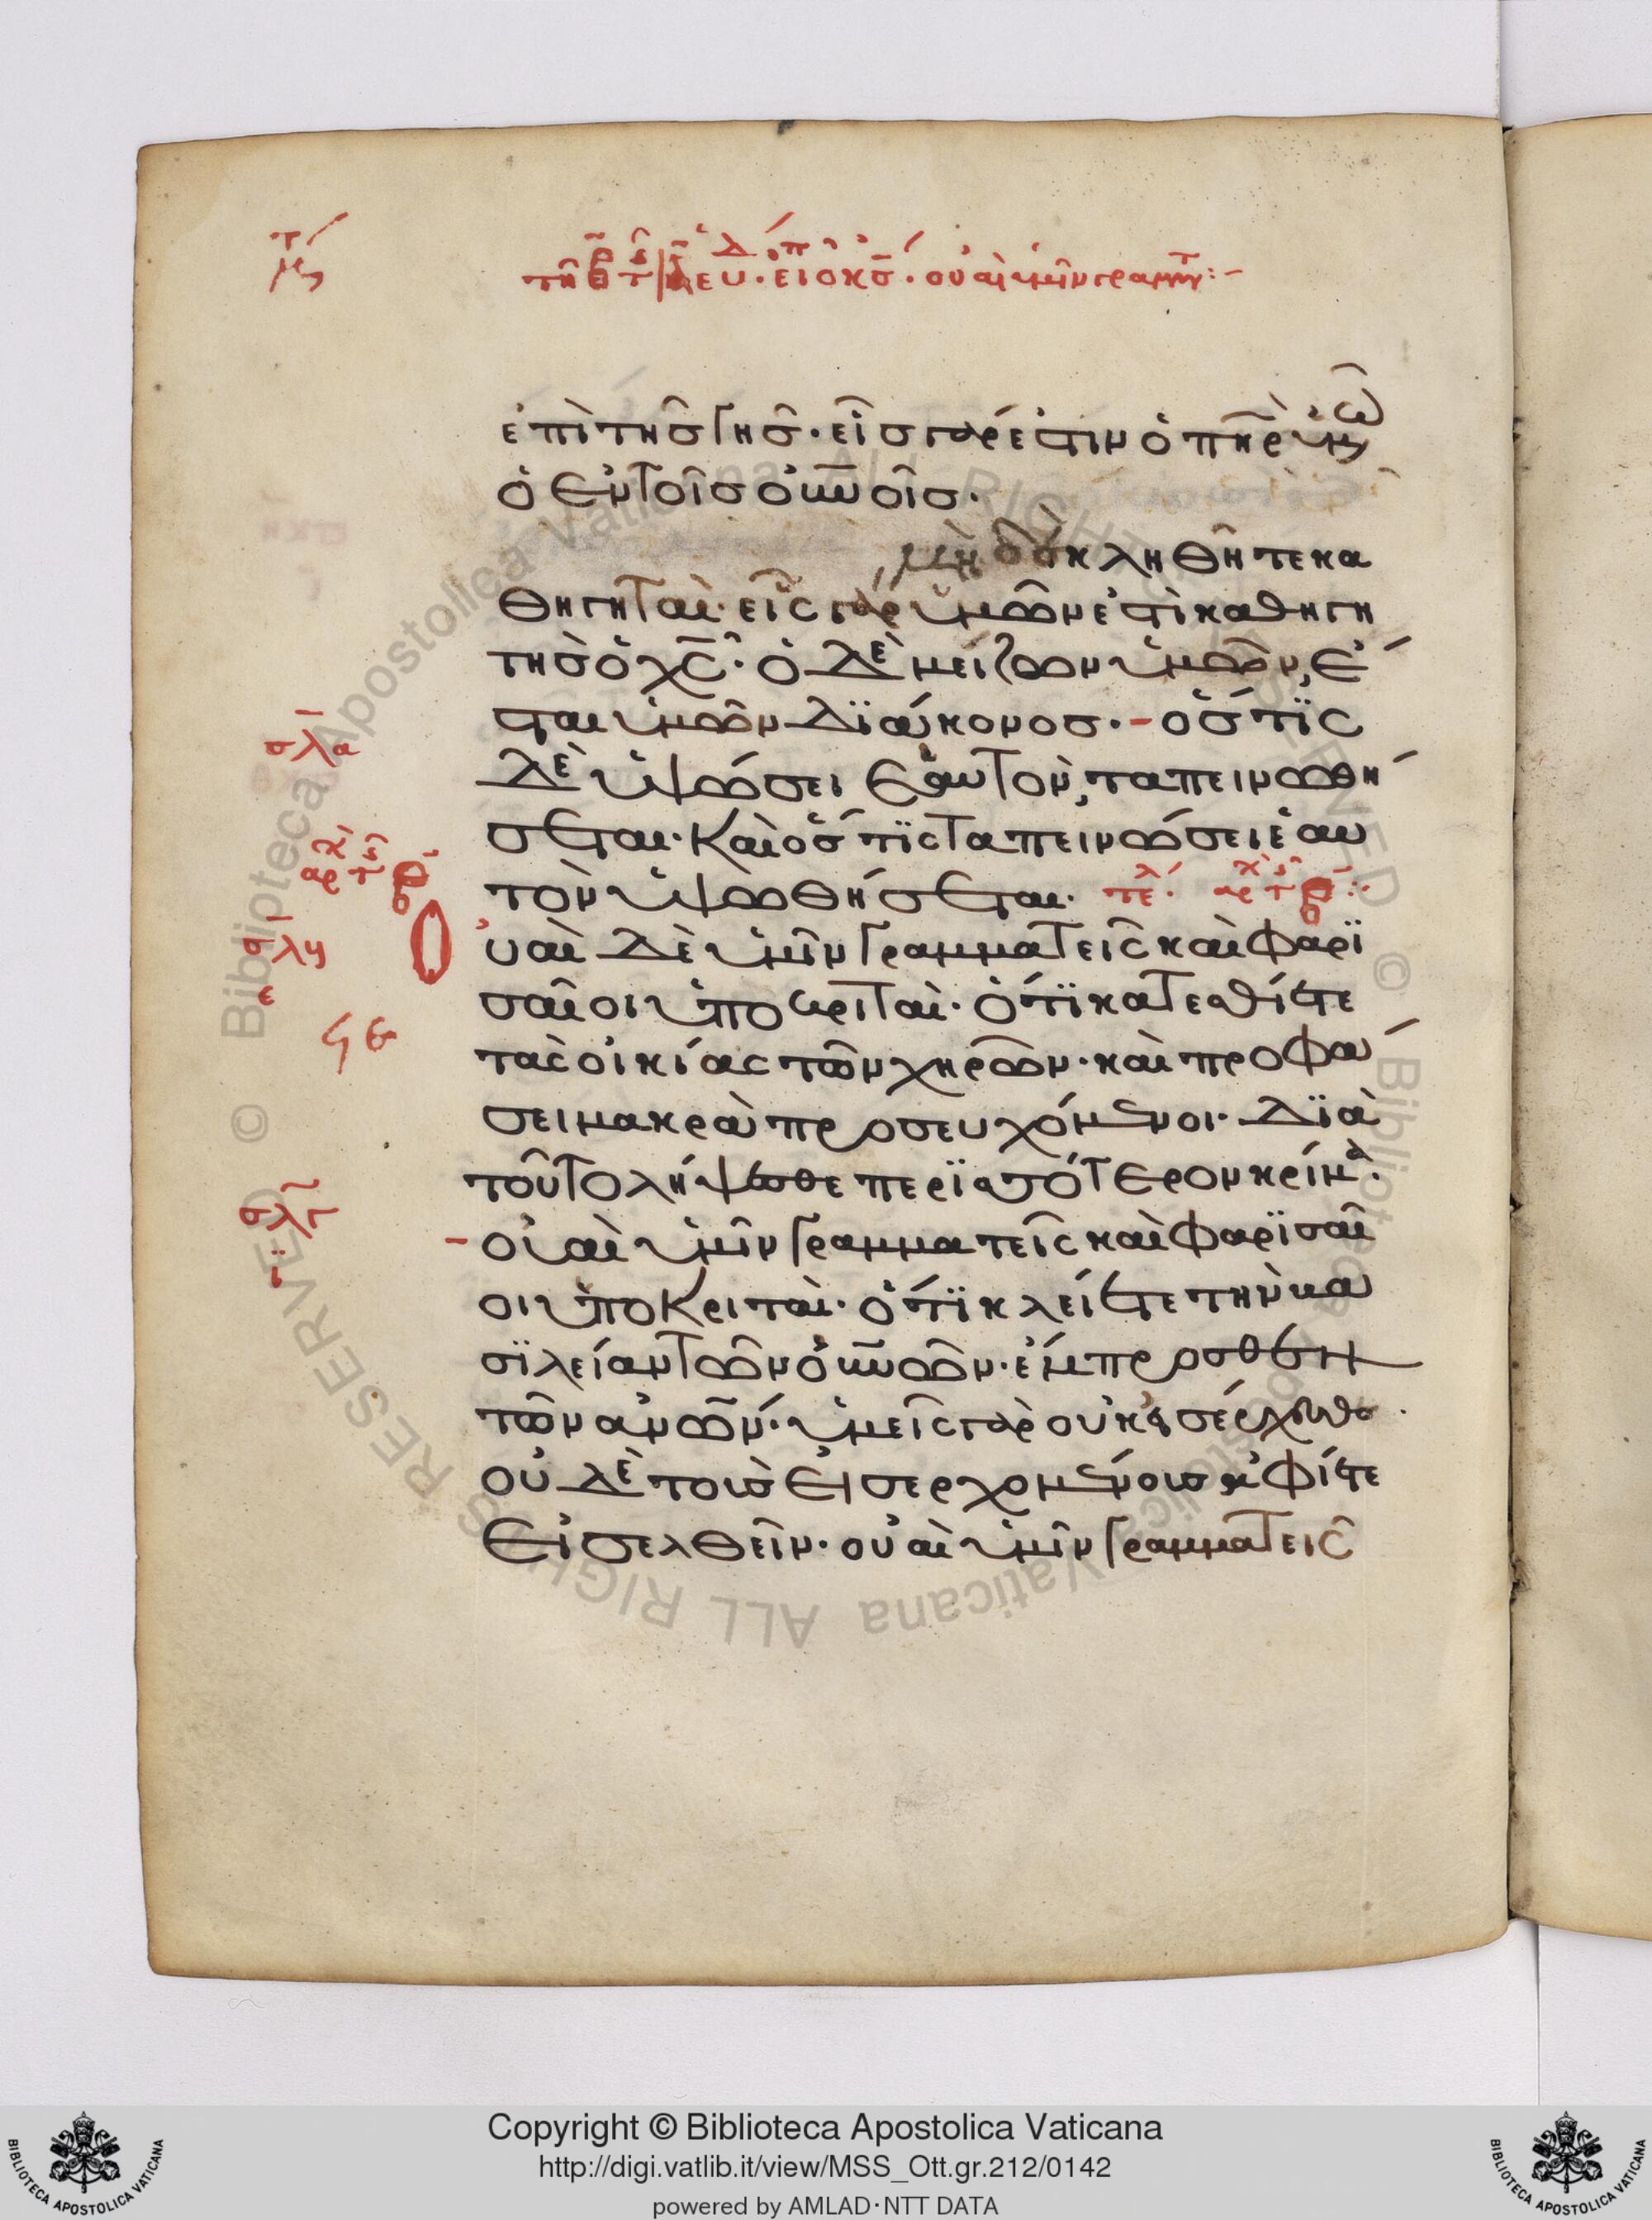 ἐπὶ τῆσ γῆσ· εἷσ γάρ ἐστιν ὁ πη̅ρ ὑμῶ
ὁ ἐν τοῖσ οὐ̅νοῖσ·
μὴ δὲ κληθῆτε κα
θηγηταὶ· εἷς γάρ ὑμῶν ἐστὶ καθηγη
τὴσ ὁ χ̅ς· ὁ δὲ μείζων ὑμῶν, ἔ
σται ὑμῶν διάκονοσ· ὅστϊς
δὲ ὑψώσει ἑαυτὸν, ταπεινωθή
σεται· καὶ ὅστϊς ταπεινώσει ἑαυ
τὸν ὑψωθήσεται· τελ
ὐαὶ δὲ ὑμῖν γραμματεῖς καὶ φαρϊ
σαῖοι ὑποκριταὶ· ὅτϊ κατεσθίετε
τὰς οἰκίας τῶν χηρῶν· καὶ προφά
σει μακρὰ προσευχόμενοι· δϊὰ
τοῦτο λήψεσθε περϊσσότερον κρίμα·
οὐαὶ ὑμῖν γραμματεῖς καὶ φαρϊσαῖ
οι ὑποκριταὶ· ὅτϊ κλείετε τὴν βα
σϊλείαν τῶν οὐ̅νῶν· ἔμπροσθεν
τῶν ἀν̅ων· ὑμεῖς γὰρ οὐκ εἰσέρχεσθε·
οὐδὲ τοὺσ εἰσερχομένουσ ἀφίετε
εἰσελθεῖν· οὐαὶ ὑμῖν γραμματεῖς
σλα
σλτ
Copyright © Biblioteca Apostolica Vaticana
http://digi.vatlib.it/view/MSS_Ott.gr.212/0142
powered by AMLAD·NTT DATA
BIBLIOTECA APOSTOLICA VATICANA
BIBLIOTECA APOSTOLICA VATICANA